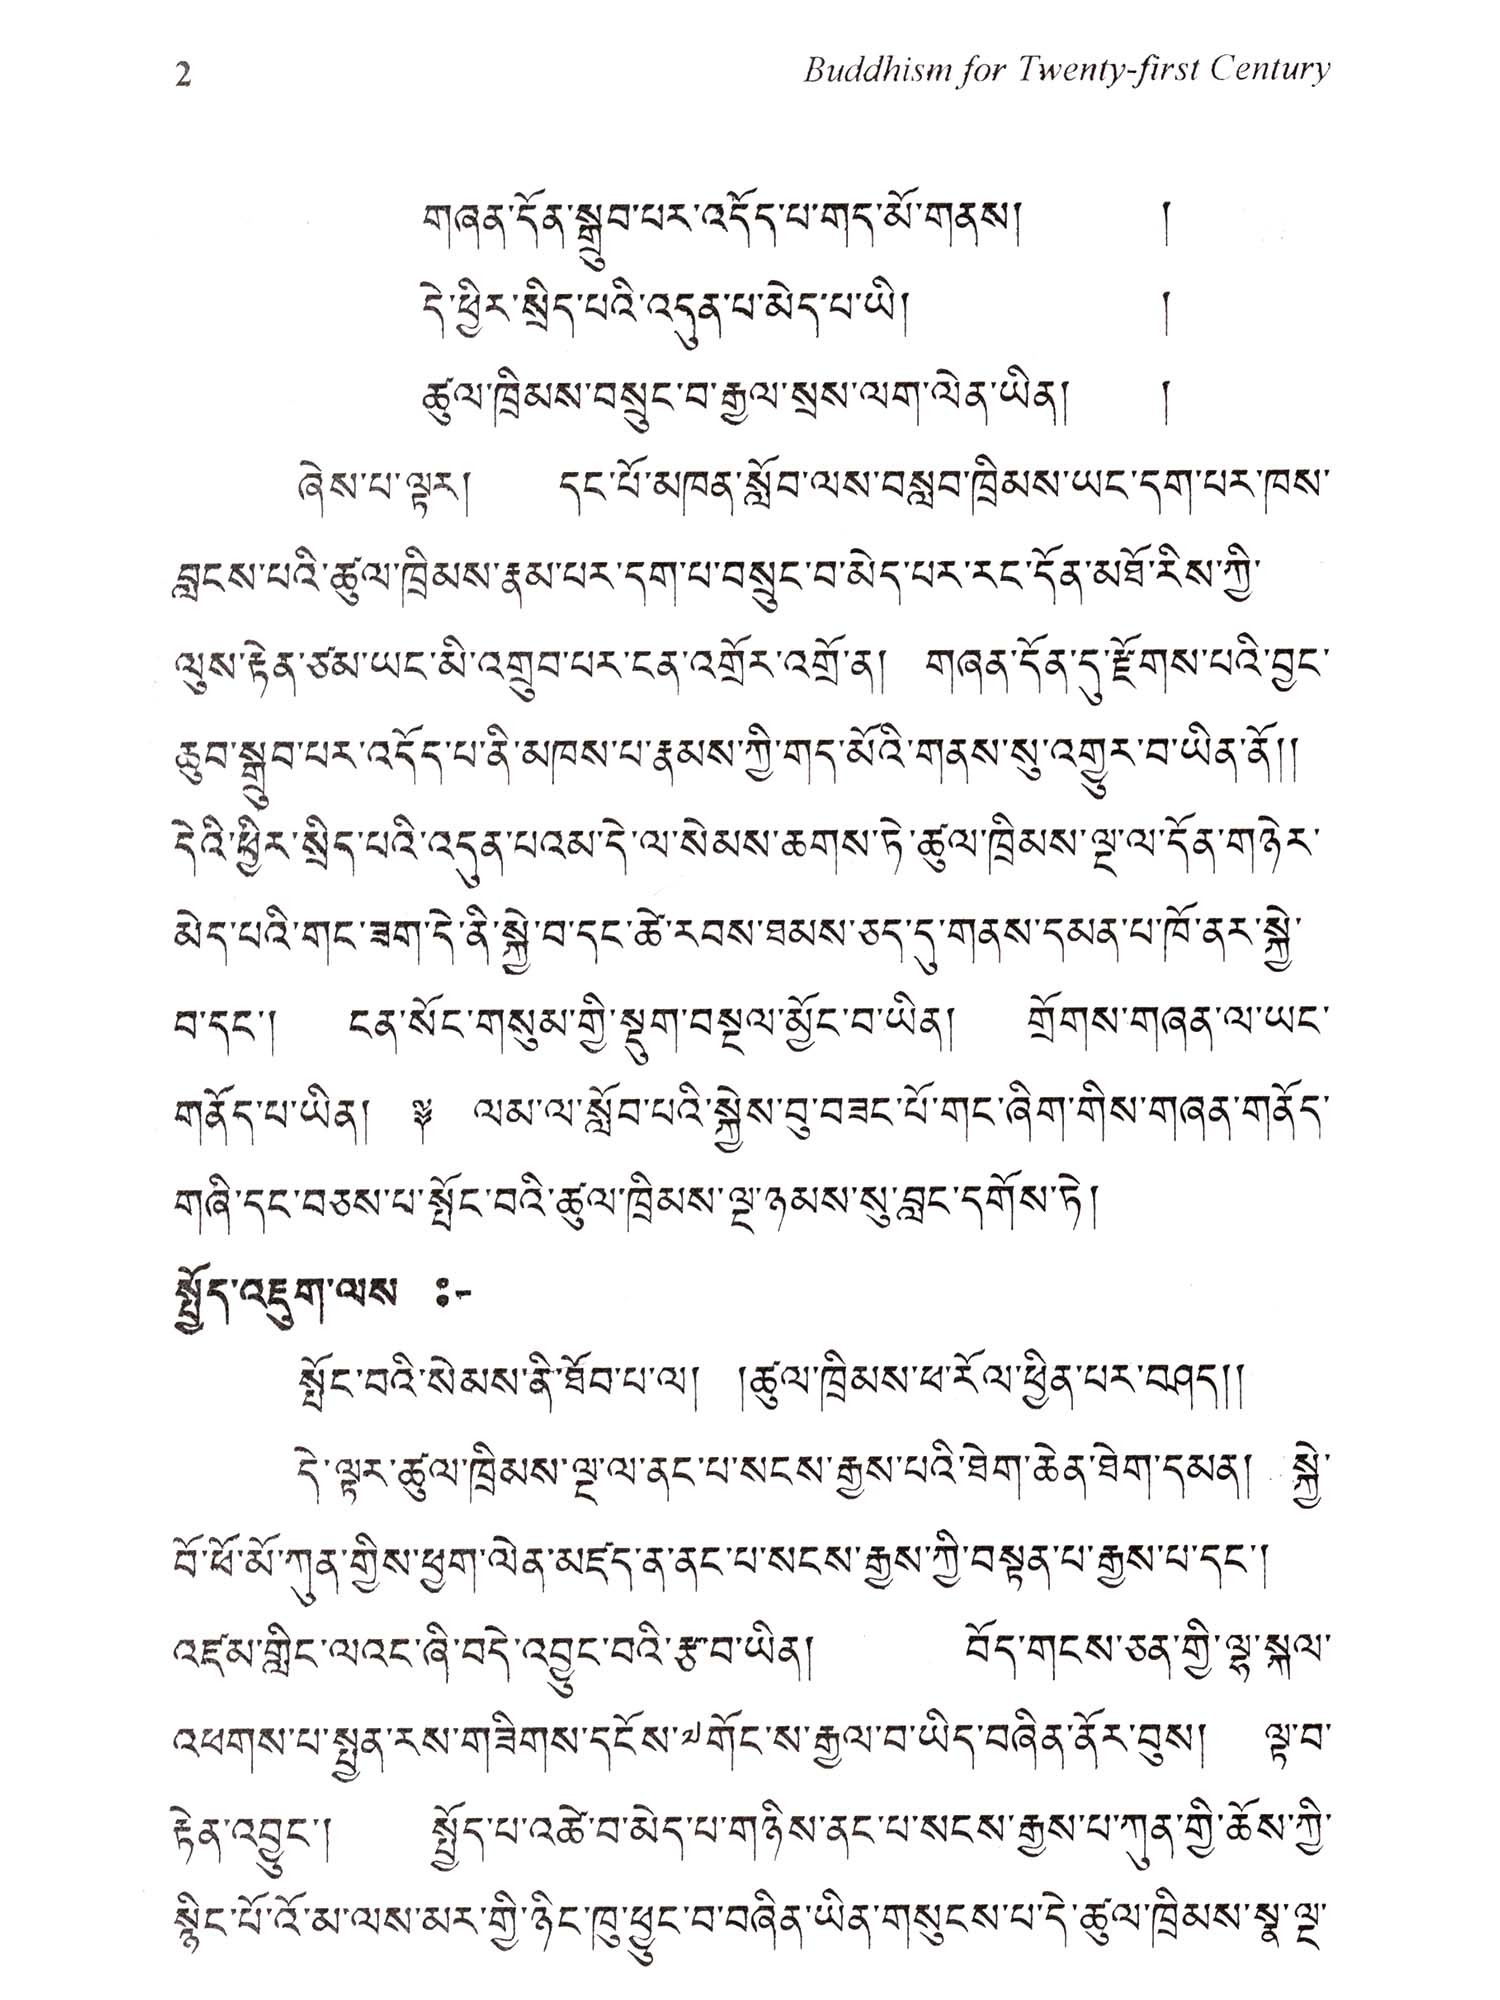 2 Buddhism for Twenty-first Century
གཞན་དོན་སྒྲུབ་པར་འདོད་པ་གད་མོ་གནས། །
དེ་ཕྱིར་སྲིད་པའི་འདུན་པ་མེད་པ་ཡི། །
ཚུལ་ཁྲིམས་བསྲུང་བ་རྒྱལ་སྲས་ལག་ལེན་ཡིན། །
ཞེས་པ་ལྟར། དང་པོ་མཁན་སློབ་ལས་བསླབ་ཁྲིམས་ཡང་དག་པར་ཁས་
བླངས་པའི་ཚུལ་ཁྲིམས་རྣམ་པར་དག་པ་བསྲུང་བ་མེད་པར་རང་དོན་མཐོ་རིས་ཀྱི་
ལུས་རྟེན་ཙམ་ཡང་མི་འགྲུབ་པར་ངན་འགྲོར་འགྲོ་ན། གཞན་དོན་དུ་རྫོགས་པའི་བྱང་
ཆུབ་སྒྲུབ་པར་འདོད་པ་ནི་མཁས་པ་རྣམས་ཀྱི་གད་མོའི་གནས་སུ་འགྱུར་བ་ཡིན་ནོ།།
དེའི་ཕྱིར་སྲིད་པའི་འདུན་པའམ་དེ་ལ་སེམས་ཆགས་ཏེ་ཚུལ་ཁྲིམས་ལྔ་ལ་དོན་གཉེར་
མེད་པའི་གང་ཟག་དེ་ནི་སྐྱེ་བ་དང་ཚེ་རབས་ཐམས་ཅད་དུ་གནས་དམན་པ་ཁོ་ནར་སྐྱེ་
བ་དང་། ངན་སོང་གསུམ་གྱི་སྡུག་བསྔལ་མྱོང་བ་ཡིན། གྲོགས་གཞན་ལ་ཡང་
གནོད་པ་ཡིན། ༈ ལམ་ལ་སློབ་པའི་སྐྱེས་བུ་བཟང་པོ་གང་ཞིག་གིས་གཞན་གནོད་
གཞི་དང་བཅས་པ་སྤོང་བའི་ཚུལ་ཁྲིམས་ལྔ་ཉམས་སུ་བླང་དགོས་ཏེ།
སྤྱོད་འཇུག་ལས :-
སྤོང་བའི་སེམས་ནི་ཐོབ་པ་ལ། །ཚུལ་ཁྲིམས་ཕ་རོལ་ཕྱིན་པར་བཤད།།
དེ་ལྟར་ཚུལ་ཁྲིམས་ལྔ་ལ་ནང་པ་སངས་རྒྱས་པའི་ཐེག་ཆེན་ཐེག་དམན། སྐྱེ་
བོ་ཕོ་མོ་ཀུན་གྱིས་ཕྱག་ལེན་མཛད་ན་ནང་པ་སངས་རྒྱས་ཀྱི་བསྟན་པ་རྒྱས་པ་དང་།
འཛམ་གླིང་ལའང་ཞི་བདེ་འབྱུང་བའི་རྩ་བ་ཡིན། བོད་གངས་ཅན་གྱི་ལྷ་སྐལ་
འཕགས་པ་སྤྱན་རས་གཟིགས་དངོས་༧གོང་ས་རྒྱལ་བ་ཡིད་བཞིན་ནོར་བུས། ལྟ་བ་
རྟེན་འབྱུང་། སྤྱོད་པ་འཚེ་བ་མེད་པ་གཉིས་ནང་པ་སངས་རྒྱས་པ་ཀུན་གྱི་ཆོས་ཀྱི་
སྙིང་པོ་འོ་མ་ལས་མར་གྱི་ཉིང་ཁུ་ཕྱུང་བ་བཞིན་ཡིན་གསུངས་པ་དེ་ཚུལ་ཁྲིམས་སྣ་ལྔ་